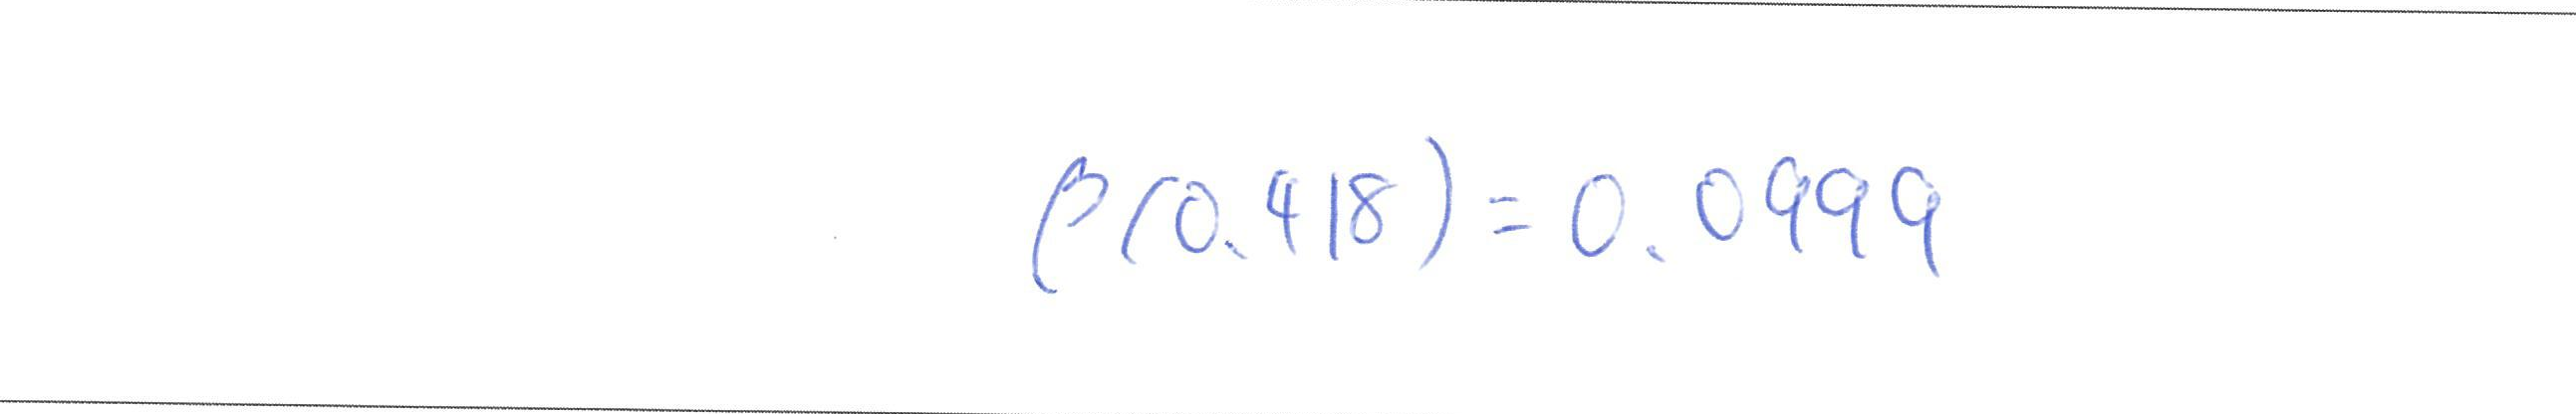 β(0.418) = 0.0999